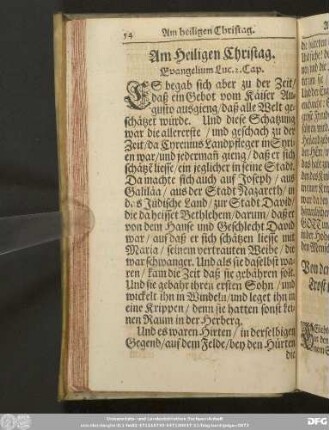 54 Am heiligen Christag.
Am Heiligen Christag.
Evangelium Luc. 2. Cap.
ES begab sich aber zu der Zeit/
daß ein Gebot vom Käiser Au-
gusto ausgieng/daß alle Welt ge-
schätzet würde. Und diese Schatzung
war die allererste / und geschach zu der
Zeit/da Cyrenius Landpfleger in Syri-
en war/und jedermañ gieng/daß er sich
schätzẽ liesse/ein jeglicher in seine Stadt.
Da machte sich auch auf Joseph/ aus
Galiläa/ aus der Stadt Nazareth/ in
das Jüdische Land/ zur Stadt David/
die da heisset Bethlehem/darum/daß er
von dem Hause und Geschlecht David
war/ auf daß er sich schätzen liesse mit
Maria/ seinem vertrauten Weibe/die
war schwanger. Und als sie daselbst wa-
ren/ kam die Zeit daß sie gebähren solt.
Und sie gebahr ihren ersten Sohn/ und
wickelt ihn in Windeln/und leget ihn in
eine Krippen/ denn sie hatten sonst kei-
nen Raum in der Herberg.
Und es waren Hirten/ in derselbigen
Gegend/auf dem Felde/bey den Hürten
die